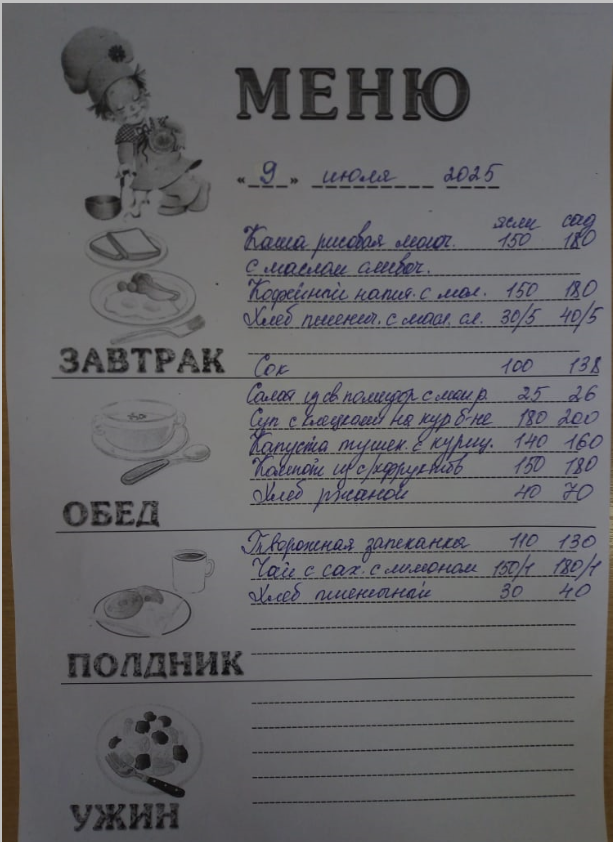 МЕНЮ
«9» июля 2025
ясли сад
Каша рисовая молоч. 150 180
с маслом сливоч.
Кофейный напит. с мол. 150 180
Хлеб пшенич. с масл. сл. 30/5 40/5
ЗАВТРАК
Сок 100 138
Салат из св. помидор с м р. 25 26
Суп с клецками на кур б-не 180 200
Капуста тушен. с куриц. 140 160
Компот из с/хфруктов 150 180
Хлеб ржаной 40 70
ОБЕД
Творожная запеканка 110 130
Чай с сах. с лимоном 150/1 180/1
Хлеб пшеничный 30 40
ПОЛДНИК
УЖИН